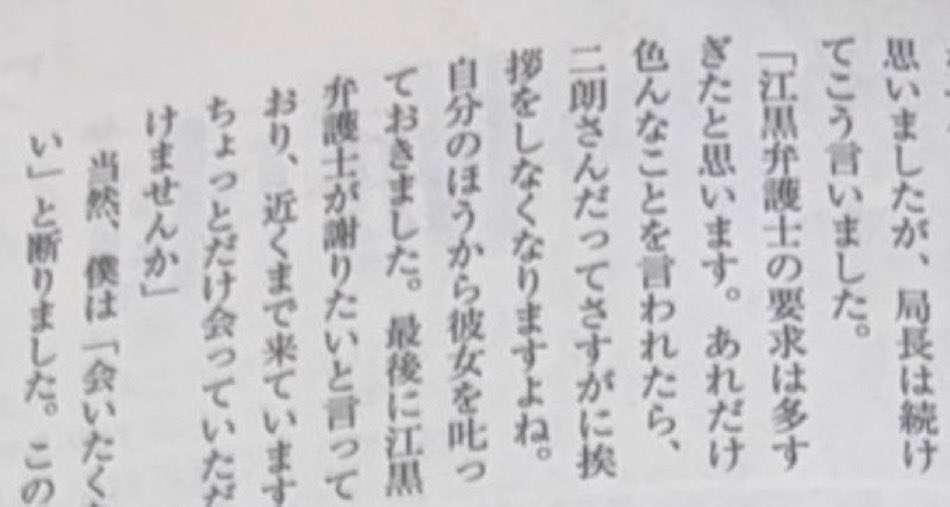 思いましたが、局長は続け
てこう言いました。
「江黒弁護士の要求は多す
ぎたと思います。あれだけ
色んなことを言われたら、
二朗さんだってさすがに挨
拶をしなくなりますよね。
自分のほうから彼女を叱っ
ておきました。最後に江黒
弁護士が謝りたいと言って
おり、近くまで来ています
ちょっとだけ会っていただ
けませんか」
当然、僕は「会いたく
い」と断りました。この